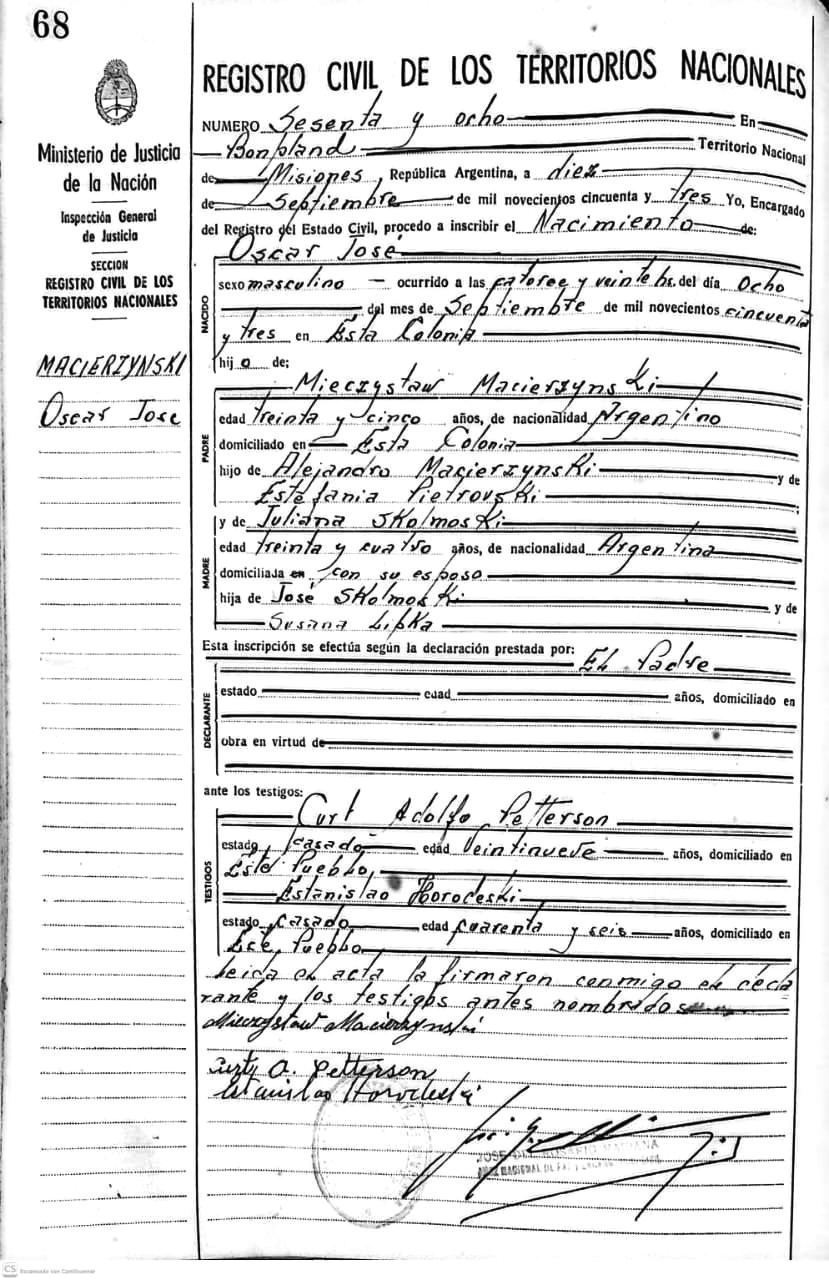 68
Ministerio de Justicia
de la Nación
Inspección General
de Justicia
SECCION
REGISTRO CIVIL DE LOS
TERRITORIOS NACIONALES
MACIERZYNSKI
Oscar Jose
REGISTRO CIVIL DE LOS TERRITORIOS NACIONALES
NUMERO Sesenta y ocho En
Bonpland Territorio Nacional
de Misiones, República Argentina, a diez
de Septiembre de mil novecientos cincuenta y tres Yo, Encargado
del Registro del Estado Civil, procedo a inscribir el Nacimiento de:
Oscar José
NACIDO
sexo masculino — ocurrido a las catorce y veinte hs. del día Ocho
del mes de Septiembre de mil novecientos cincuenta
y tres en Esta Colonia
hij o de;
PADRE
Mieczystaw Macierzynski
edad treinta y cinco años, de nacionalidad Argentino
domiciliado en Esta Colonia
hijo de Alejandro Macierzynski y de
Estefania Pietrovski ;
MADRE
y de Juliana Skolmoski
edad treinta y cuatro años, de nacionalidad Argentina
domiciliada en con su esposo
hija de José Skolmoski y de
Susana Lipka
Esta inscripción se efectúa según la declaración prestada por: El Padre
DECLARANTE
estado edad años, domiciliado en
obra en virtud de
ante los testigos:
TESTIGOS
Curt Adolfo Petterson
estado casado edad Veintinueve años, domiciliado en
Este Pueblo,
Estanislao Horodeski
estado casado edad cuarenta y seis años, domiciliado en
Este Pueblo
Leida el acta la firmaron conmigo el decla
rante y los testigos antes nombrados
Mieczystaw Macierzynski
A. Petterson
Horodeski
JOSE
CS Escaneado con CamScanner